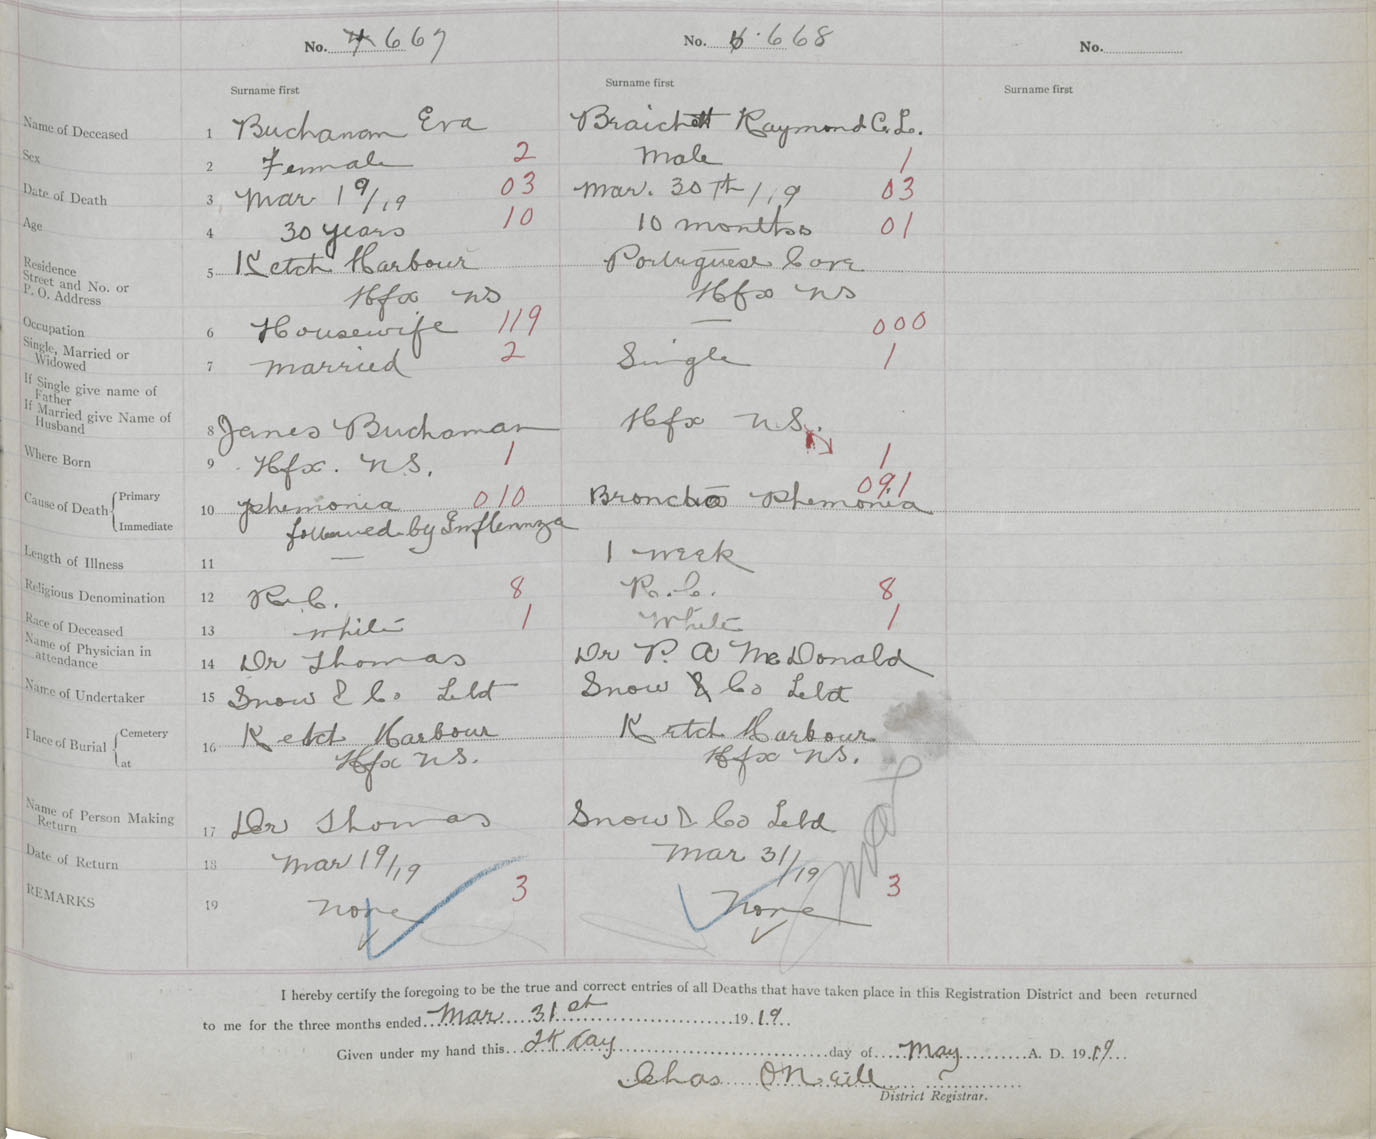 No. 667 No. 668 No.
Surname first Surname first Surname first
Name of Deceased 1 Buchanan Eva Braichett Raymond C. L.
Sex 2 Female 2 Male 1
Date of Death 3 Mar 19/19 03 Mar. 30th/19 03
Age 4 30 years 10 10 months 01
Residence
Street and No. or
P. O. Address 5 Ketch Harbour Portuguese Cove
Hfx NS Hfx NS
Occupation 6 Housewife 119 — 000
Single, Married or
Widowed 7 married 2 Single 1
If Single give name of
Father
If Married give Name of
Husband 8 James Buchanan Hfx N.S.
Where Born 9 Hfx. N.S. 1 1
Cause of Death { Primary 10 phemonia 010 Broncho Phemonia 091
Immediate followed by Inflennza
Length of Illness 11 — 1 week
Religious Denomination 12 R.C. 8 R.C. 8
Race of Deceased 13 white 1 White 1
Name of Physician in
attendance 14 Dr Thomas Dr P. A McDonald
Name of Undertaker 15 Snow & Co Letd Snow & Co Letd
Place of Burial { Cemetery 16 Ketch Harbour Ketch Harbour
at Hfx NS. Hfx NS.
Name of Person Making
Return 17 Dr Thomas Snow & Co Letd
Date of Return 18 Mar 19/19 Mar 31/19
REMARKS 19 none 3 none 3
I hereby certify the foregoing to be the true and correct entries of all Deaths that have taken place in this Registration District and been returned
to me for the three months ended Mar 31st 1919
Given under my hand this day of May A. D. 1919
Chas O'Neill
District Registrar.